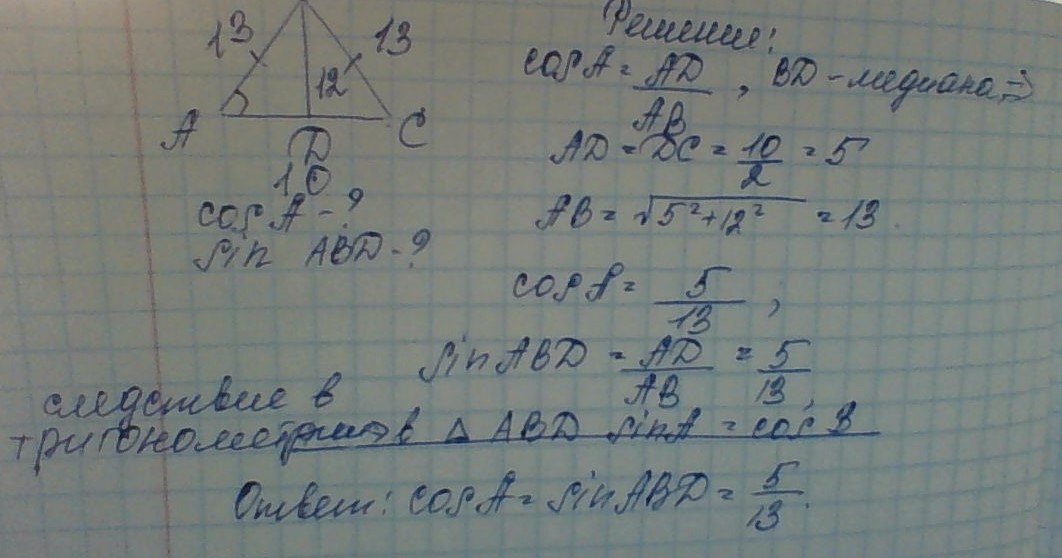 13 13
12
A D C
10
cos A - ?
sin ABD - ?
Решение:
cos A = AD/AB, BD - медиана ⇒
AD = DC = 10/2 = 5
AB = √5²+12² = 13.
cos A = 5/13,
sin ABD = AD/AB = 5/13,
следствие в
тригонометрии в Δ ABD sin A = cos B
Ответ: cos A = sin ABD = 5/13.